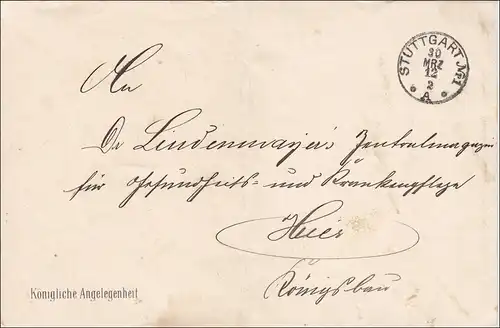 STUTTGART No 1
30
MRZ
12
2
* A *
An
Dr Lindenmayer's Zentralmagazin
für Gesundheits- und Krankenpflege
Hier
Königsbau
Königliche Angelegenheit